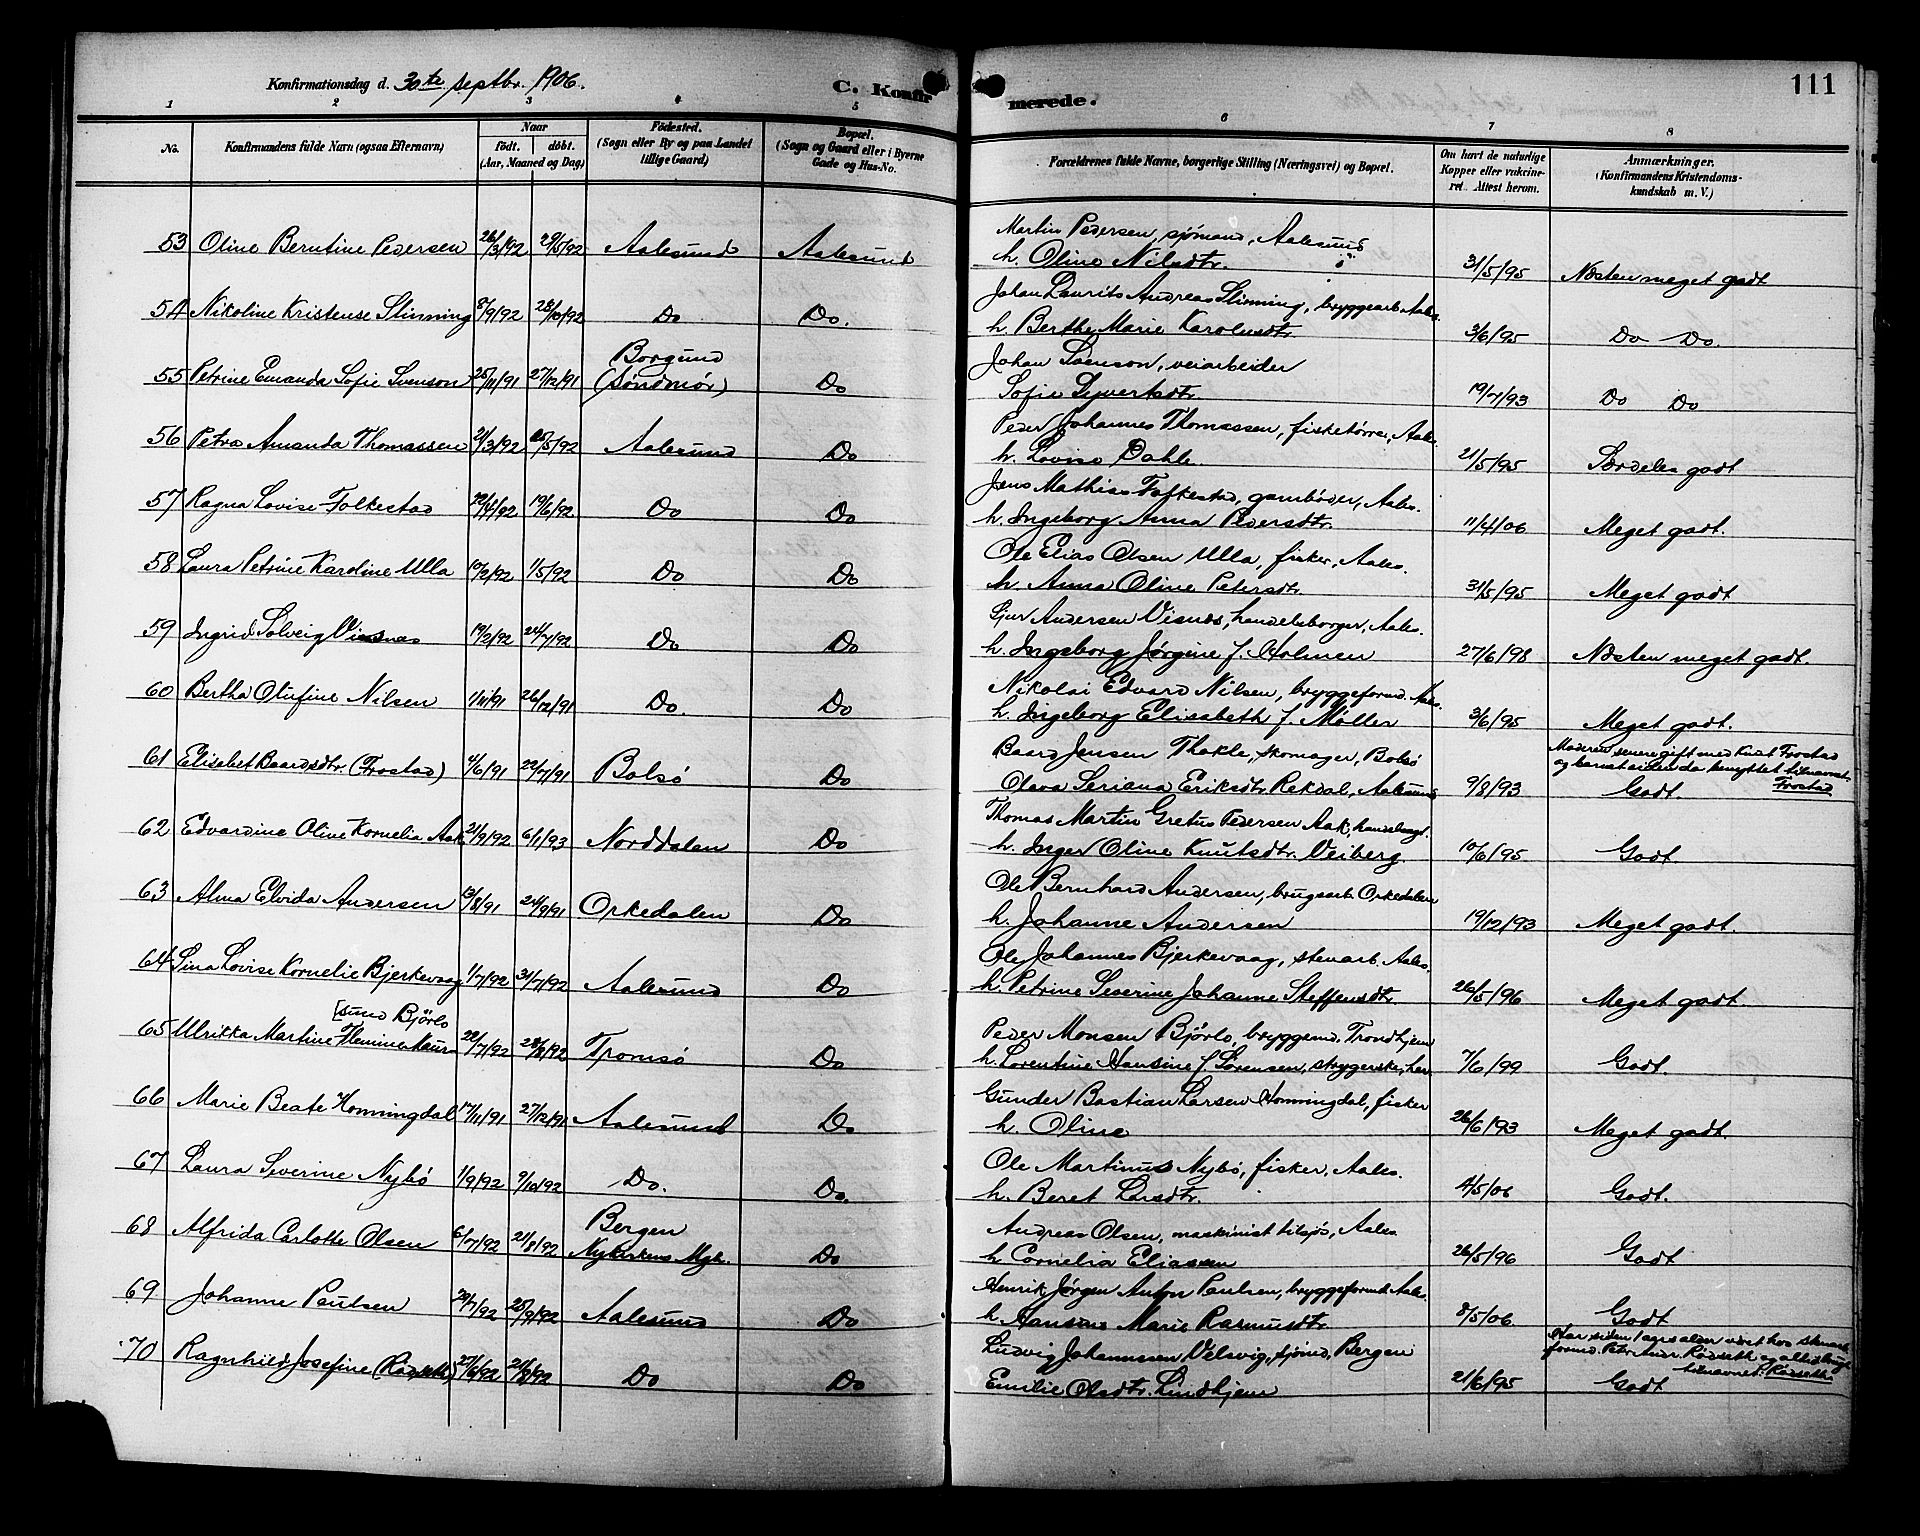 Konfirmationsdag d. 30te septbr. 1906. C. Konfir merede. 111
1 2 3 4 5 6 7 8
No. Konfirmandens fulde Navn (ogsaa Efternavn) Naar født. døbt. (Aar, Maaned og Dag) Fødested. (Sogn eller By og paa Landet tillige Gaard) Bopæl. (Sogn og Gaard eller i Byerne Gade og Hus-No. Forældrenes fulde Navne, borgerlige Stilling (Næringsvei) og Bopæl. Om havt de naturlige Kopper eller vakcineret. Attest herom. Anmærkninger. (Konfirmandens Kristendomskundskab m. V.)
Martin Pedersen, sjømand, Aalesund
53 Oline Berntine Pedersen 26/3/92 29/5/92 Aalesund Aalesund h. Oline Nilsdtr. 31/5/95 Næsten meget godt
Johan Laurits Andreas Slinning, bryggearb. Aales.
54 Nikoline Kristense Slinning 8/9/92 28/10/92 Do Do. h. Berthe Marie Karolusdtr. 3/6/95 Do Do.
Borgund Johan Svenson, veiarbeider
55 Petrine Emanda Sofie Svenson 25/11/91 27/12/91 (Søndmør) Do Sofie Syvertsdtr. 19/7/93 Do Do
Peder Johannes Thomassen, fisketørrer, Aales.
56 Petra Amanda Thomassen 21/3/92 25/5/92 Aalesund Do h. Lovise Dahle. 21/5/95 Særdeles godt
Jens Mathias Folkestad, garnbøder, Aales.
57 Ragna Lovise Folkestad 22/4/92 19/6/92 Do Do h. Ingeborg Anna Pedersdtr. 11/4/06 Meget godt.
Ole Elias Olsen Ulla, fisker, Aales.
58 Laura Petrine Karoline Ulla 10/2/92 1/5/92 Do Do h. Anna Oline Petersdtr. 31/5/95 Meget godt
Sjur Andersen Visnes, handelsborger, Aales.
59 Ingrid Solveig Visnæs 19/2/92 24/7/92 Do Do h. Ingeborg Jørgine f. Holmen 27/6/98 Næsten meget godt.
Nikolai Edvard Nilsen, bryggeformd. Aales.
60 Bertha Olufine Nilsen 1/11/91 26/12/91 Do. Do h. Ingeborg Elisabeth f. Møller 3/6/95 Meget godt.
Baard Jensen Thokle, skomager, Bolsø Moderen senere gift med Knut Frostad
61 Elisebet Baardsdtr. (Frostad) 4/6/91 22/7/91 Bolsø Do Olava Seriana Eriksdtr. Rekdal, Aalesund 9/8/93 og barnet siden da benyttet tilnavnet Frostad Godt.
Thomas Martin Gretus Pedersen Aak, handelsagt.
62 Edvardine Olive Kornelia Aak 21/9/92 6/1/93 Norddalen Do h. Inger Oline Knutsdtr. Veiberg 10/6/95 Godt
Ole Bernhard Andersen, brugsarb. Orkedalen
63 Alma Elvida Andersen 13/8/91 24/9/91 Orkedalen Do h. Johanne Andersen 19/12/93 Meget godt.
Ole Johannes Bjerkevaag, stenarb. Aales.
64 Sina Lovise Kornelie Bjerkevaag 1/7/92 31/7/92 Aalesund Do h. Petrine Severine Johanne Steffensdtr. 26/5/96 Meget godt
[sund Bjørlo Peder Monsen Bjørlo, bryggemd. Trondhjem
65 Ulrikka Martine Flemine Maur 22/7/92 28/8/92 Tromsø Do h. Lorentine Hansine f. Sørensen, strygerske, her 7/6/99 Godt.
Gunder Bastian Larsen Honningdal, fisker
66 Marie Beate Honningdal 17/11/91 27/12/91 Aalesund Do h. Oline 26/6/93 Meget godt.
Ole Martinus Nybø, fisker, Aales.
67 Laura Severine Nybø 1/9/92 9/10/92 Do. Do. h. Beret Larsdtr. 4/5/06 Godt.
Bergen Andreas Olsen, maskinist tilsjøs, Aales
68 Alfrida Carlotte Olsen 6/7/92 21/8/92 Nykirkens Mgh. Do h. Cornelia Eliassen 26/5/96 Godt
Henrik Jørgen Anton Paulsen, bryggeformd. Aales.
69 Johanne Paulsen 29/7/92 25/9/92 Aalesund Do h. Hansine Marie Rasmusdtr. 8/5/06. Godt
Ludvig Johannssen Velsvig, sjømd., Bergen Har siden 1 aars alder været hos
70 Ragnhild Josefine (Rødseth) 27/6/92 21/8/92 Do Do Emilie Olsdtr. Lindhjem 21/6/95 formd. Petr Andr. Rødseth og altid brugt tilnavnet: Rødseth. Godt